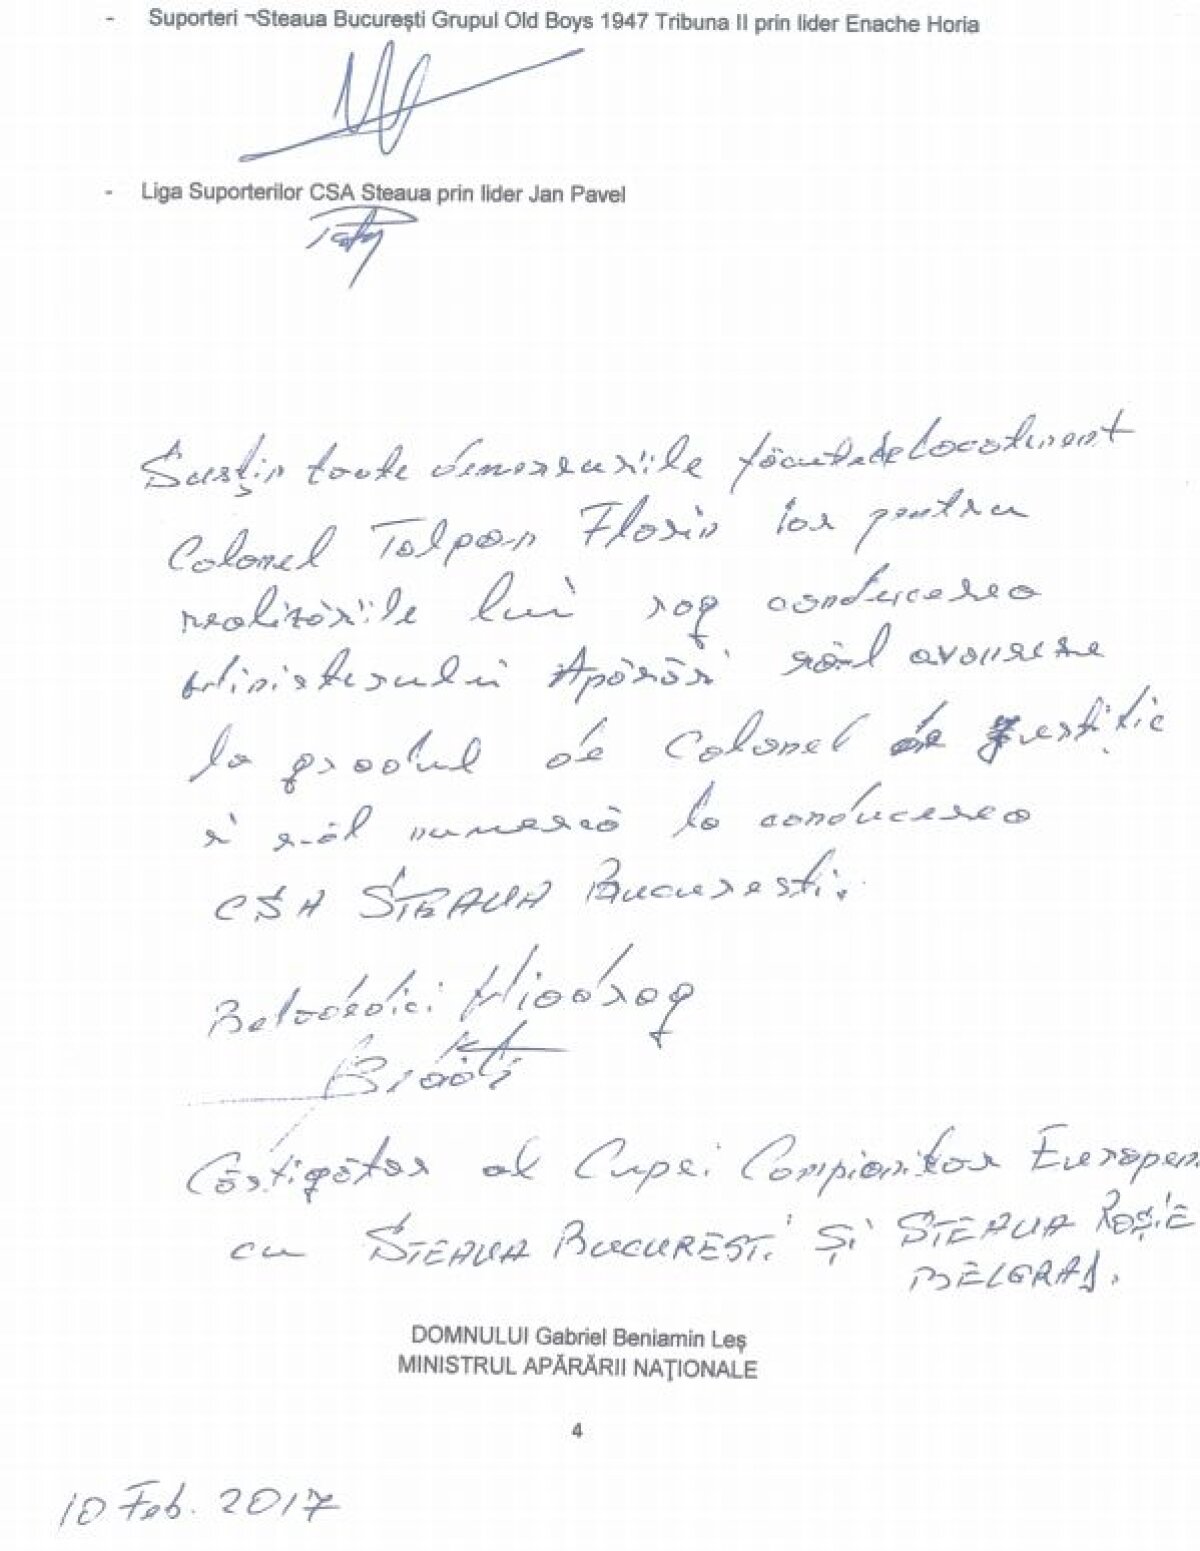 - Suporteri ¬Steaua București Grupul Old Boys 1947 Tribuna II prin lider Enache Horia
- Liga Suporterilor CSA Steaua prin lider Jan Pavel
Susțin toate demersurile făcute de Locotinent
Colonel Talpan Florin iar pentru
realizările lui rog conducerea
Ministerului Apărări să-l avanseze
la gradul de Colonel de Justiție
și s-ăl numească la conducerea
CSA STEAUA Bucuresti.
Belodedici Miodrag
Câstigător al Cupei Campionilor Europeni
cu STEAUA BUCURESTI ȘI STEAUA ROȘIE
BELGRAD.
DOMNULUI Gabriel Beniamin Leș
MINISTRUL APĂRĂRII NAȚIONALE
4
10 Feb. 2017